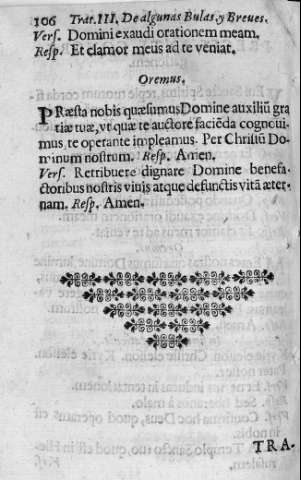 106 Trat.III. De algunas Bulas, y Breues.
Vers. Domini exaudi orationem meam.
Resp. Et clamor meus ad te veniat.
Oremus.
PRæsta nobis quæsumus Domine auxiliũ gra
tiæ tuæ, vt quæ te auctore faciẽda cognoui-
mus, te operante impleamus. Per Christũ Do-
minum nostrum. Resp. Amen.
Vers. Retribuere dignare Domine benefa-
ctoribus nostris viuis atque defunctis vitã æter-
nam. Resp. Amen.
TRA-